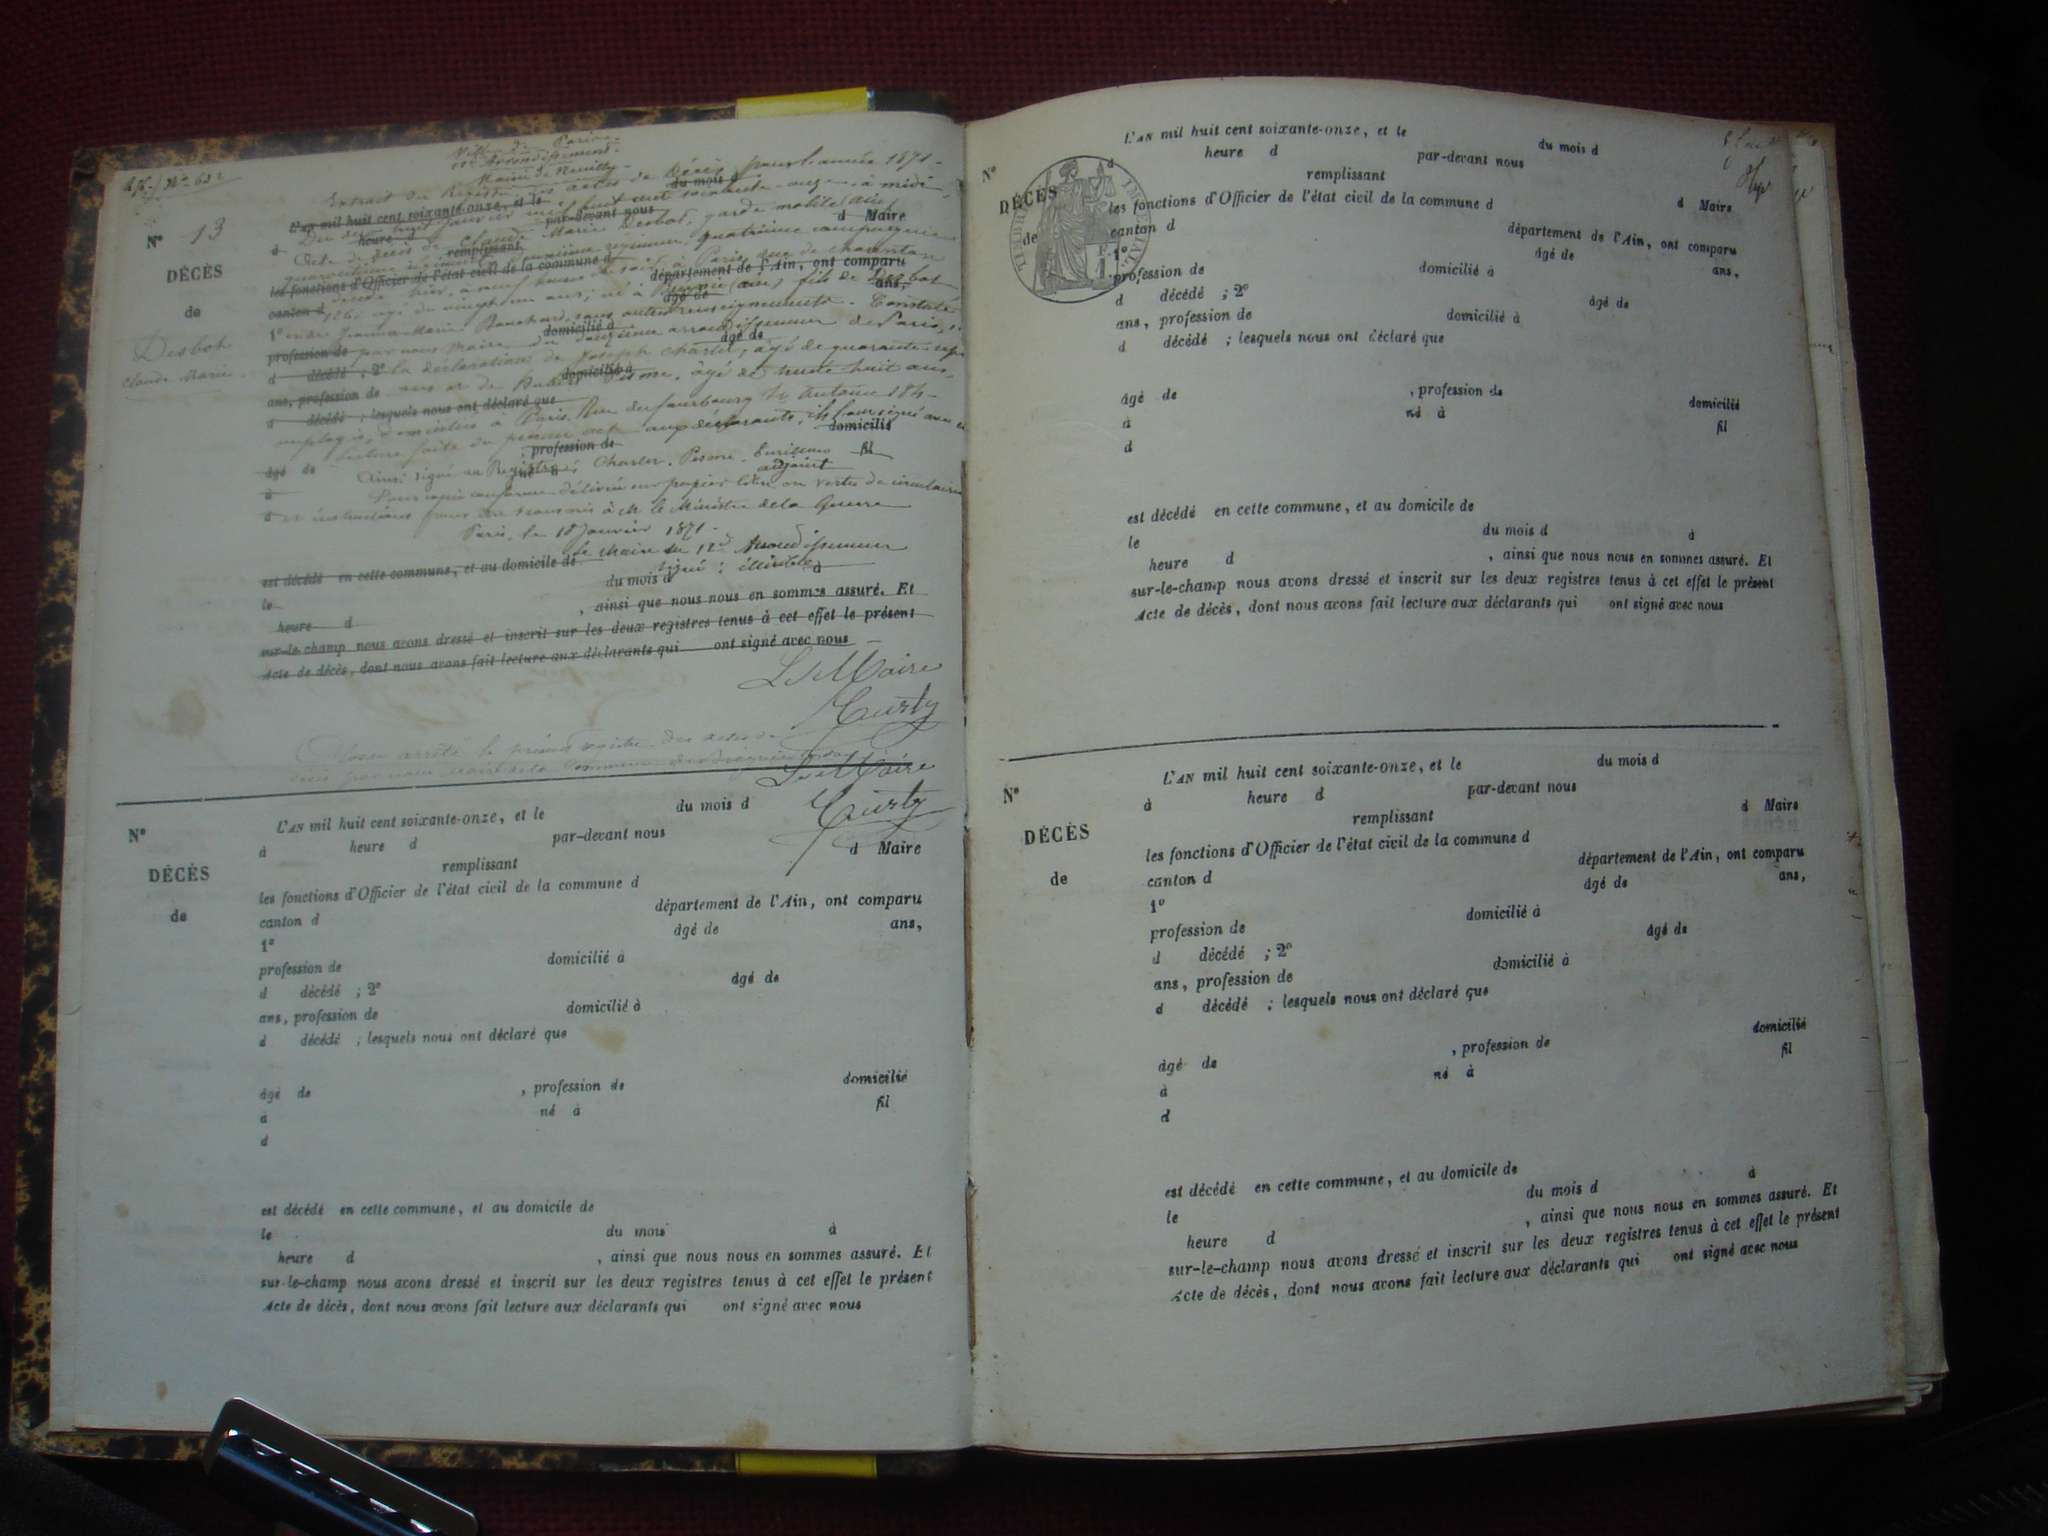 Ville de Paris.
Arrondissement.
Mairie de Neuilly
Extrait du Registre des actes de Décès pour l'année 1871.
N° 13
DÉCÈS
de
Desbot
Claude Marie
L'AN mil huit cent soixante-onze, et le du mois d
d heure d par-devant nous
remplissant d Maire
les fonctions d'Officier de l'état civil de la commune d
canton d département de l'Ain, ont comparu
1° âgé de ans,
profession de domicilié à
d décédé ; 2° âgé de
ans, profession de domicilié à
d décédé ; lesquels nous ont déclaré que
âgé de , profession de domicilié
à né à fil
d
Du dix huit janvier mil huit cent soixante-onze, à midi,
Acte de décès de Claude Marie Desbot, garde mobile
régiment, quatrième compagnie
décédé hier, à neuf heures du soir à Paris, rue de Charenton
âgé de vingt un ans, né à (Ain) fils de Desbot
et de Jeanne Marie sans autres renseignements. Constaté
par nous Maire du douzième arrondissement de Paris,
la déclaration de Joseph Charlet, âgé de quarante-sept
ans et de Pesme, âgé de trente huit ans,
employés, domiciliés à Paris, Rue du faubourg St Antoine 184
lecture faite du présent acte aux déclarants, ils l'ont signé avec
Ainsi signé au Registre: Charlet, Pesme,
adjoint
Pour copie conforme délivrée sur papier libre en vertu de circulaires
et instructions pour être transmis à M. le Ministre de la Guerre
Paris, le 18 Janvier 1871.
Le Maire du 12e Arrondissement
signé: illisible
est décédé en cette commune, et au domicile de
le du mois d à
heure d , ainsi que nous nous en sommes assuré. Et
sur-le-champ nous avons dressé et inscrit sur les deux registres tenus à cet effet le présent
Acte de décès, dont nous avons fait lecture aux déclarants qui ont signé avec nous
Le Maire
Curty
arrêté le présent registre des actes de
Le Maire
Curty
N°
DÉCÈS
de
L'AN mil huit cent soixante-onze, et le du mois d
à heure d par-devant nous
remplissant d Maire
les fonctions d'Officier de l'état civil de la commune d
canton d département de l'Ain, ont comparu
1° âgé de ans,
profession de domicilié à
d décédé ; 2° âgé de
ans, profession de domicilié à
d décédé ; lesquels nous ont déclaré que
âgé de , profession de domicilié
à né à fil
d
est décédé en cette commune, et au domicile de
le du mois à
heure d , ainsi que nous nous en sommes assuré. Et
sur-le-champ nous avons dressé et inscrit sur les deux registres tenus à cet effet le présent
Acte de décès, dont nous avons fait lecture aux déclarants qui ont signé avec nous
N°
DÉCÈS
de
L'AN mil huit cent soixante-onze, et le du mois d
d heure d par-devant nous
remplissant d Maire
les fonctions d'Officier de l'état civil de la commune d
canton d département de l'Ain, ont comparu
1° âgé de ans,
profession de domicilié à
d décédé ; 2° âgé de
ans, profession de domicilié à
d décédé ; lesquels nous ont déclaré que
âgé de , profession de domicilié
à né à fil
d
est décédé en cette commune, et au domicile de
le du mois d à
heure d , ainsi que nous nous en sommes assuré. Et
sur-le-champ nous avons dressé et inscrit sur les deux registres tenus à cet effet le présent
Acte de décès, dont nous avons fait lecture aux déclarants qui ont signé avec nous
N°
DÉCÈS
de
L'AN mil huit cent soixante-onze, et le du mois d
à heure d par-devant nous
remplissant d Maire
les fonctions d'Officier de l'état civil de la commune d
canton d département de l'Ain, ont comparu
1° âgé de ans,
profession de domicilié à
d décédé ; 2° âgé de
ans, profession de domicilié à
d décédé ; lesquels nous ont déclaré que
âgé de , profession de domicilié
à né à fil
d
est décédé en cette commune, et au domicile de
le du mois d à
heure d , ainsi que nous nous en sommes assuré. Et
sur-le-champ nous avons dressé et inscrit sur les deux registres tenus à cet effet le présent
Acte de décès, dont nous avons fait lecture aux déclarants qui ont signé avec nous